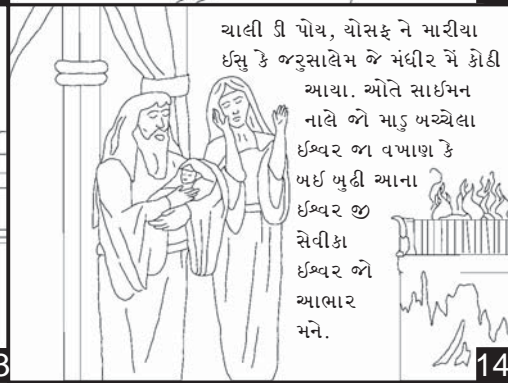 ચાલી ડી પોય, યોસફ ને મારીયા
ઈસુ કે જરુસાલેમ જે મંધીર મેં કોઠી
આયા. ઓતે સાઈમન
નાલે જો માડુ બચ્ચેલા
ઈશ્વર જા વખાણ કે
બઈ બુઢી આના
ઈશ્વર જી
સેવીકા
ઈશ્વર જો
આભાર
મને.
3
14